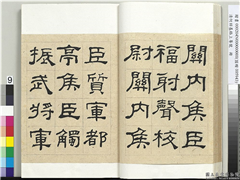 關內侯臣
福射聲校
尉關內侯
臣質軍都
亭侯臣觸
振武將軍
9